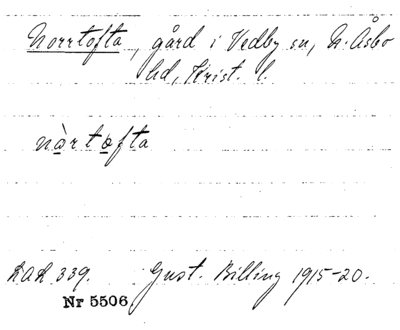 Norrtofta, gård i Vedby sn, N. Åsbo
hd, Krist. l.
nàrtofta
LAL 339. Gust. Billing 1915-20.
Nr 5506